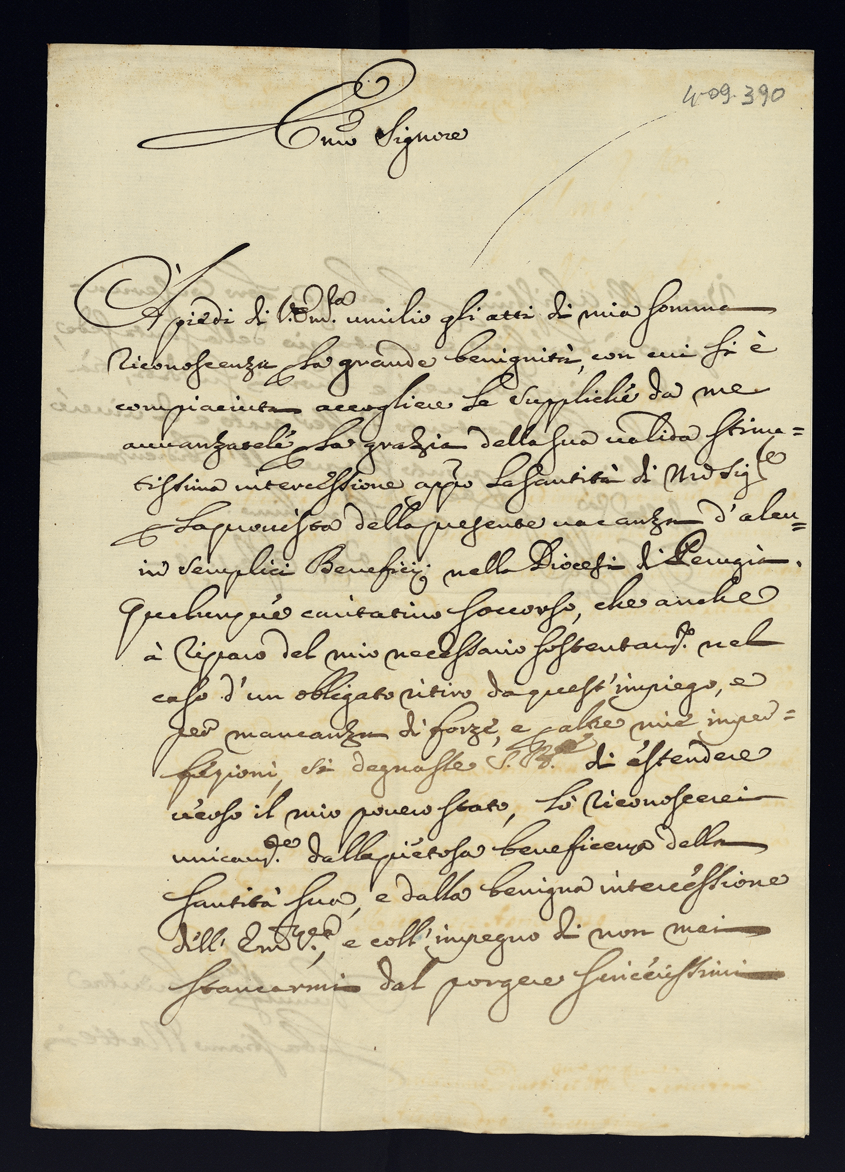 4-09-390
Em̃o Signore
A piedi di V. Em.za umilio gli atti di mia somma
riconoscenza p la grande benignità, con cui si è
compiaciuta accogliere le suppliche da me
avvanzatele p la grazia della sua valida stima=
tissima intercessione app̃o la Santità di Nr̃o Sig.re
p la provista della presente vacanza d'alcu=
ni semplici Beneficij nella Diocesi di Perugia.
Qualunque caritativo soccorso, che anche
à riparo del mio necessario sostentam.to nel
caso d'un obligato ritiro da quest'impiego, e
per mancanza di forze, e p altre mie imper=
fezioni, si degnasse S. B.ne di estendere
verso il mio povero stato, lo riconoscerei
unicam.te dalla pietosa beneficenza della
Santità Sua, e dalla benigna intercessione
dell' Em. V.ra, e coll'impegno di non mai
stancarmi dal porgere sincerissimi